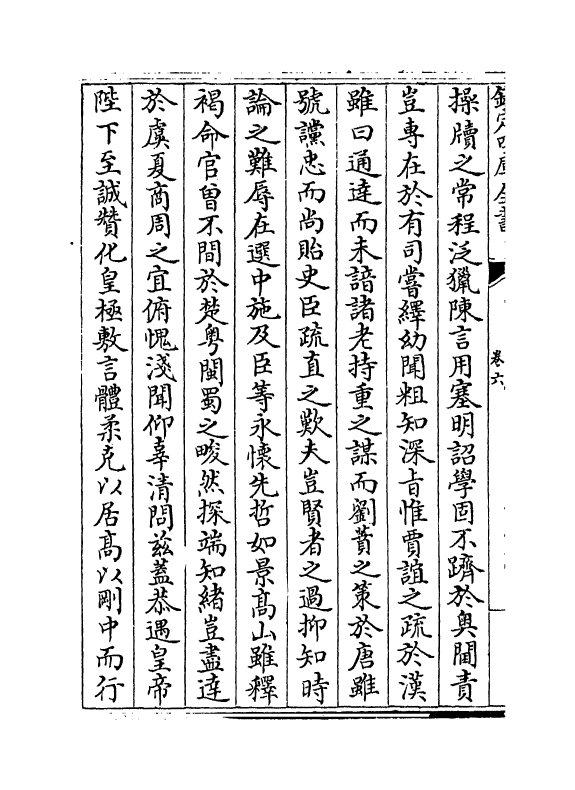 欽定四庫全書
卷六
操牘之常程泛獵陳言用塞明詔學固不躋於奥閫責
豈專在於有司嘗繹幼聞粗知深㫖惟賈誼之疏於漢
雖曰通達而未諳諸老持重之謀而劉蕡之策於唐雖
號讜忠而尚貽史臣疏直之歎夫豈賢者之過抑知時
論之難辱在選中施及臣等永懷先哲如景髙山雖釋
褐命官曽不間於楚粤閩蜀之畯然探端知緒豈盡達
於虞夏商周之宜俯愧淺聞仰辜清問兹蓋恭遇皇帝
陛下至誠贊化皇極敷言體柔克以居髙以剛中而行